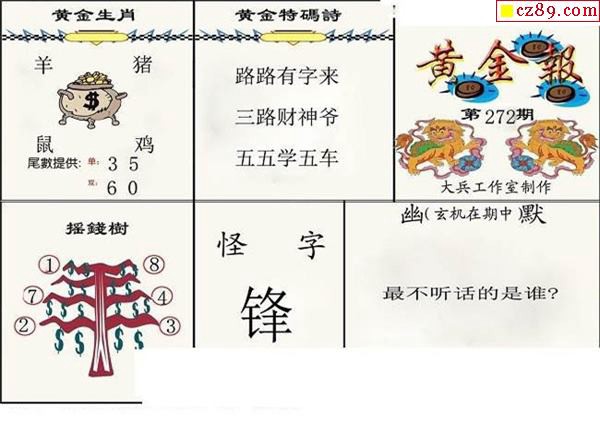 cz89.com
黄金生肖
羊 猪
鼠 鸡
尾數提供: 单: 3 5
双: 6 0
黄金特碼詩
路路有字来
三路财神爷
五五学五车
黄金報
第272期
大兵工作室制作
摇錢樹
1 8
7 4
2 3
怪 字
锋
幽(玄机在期中)默
最不听话的是谁?